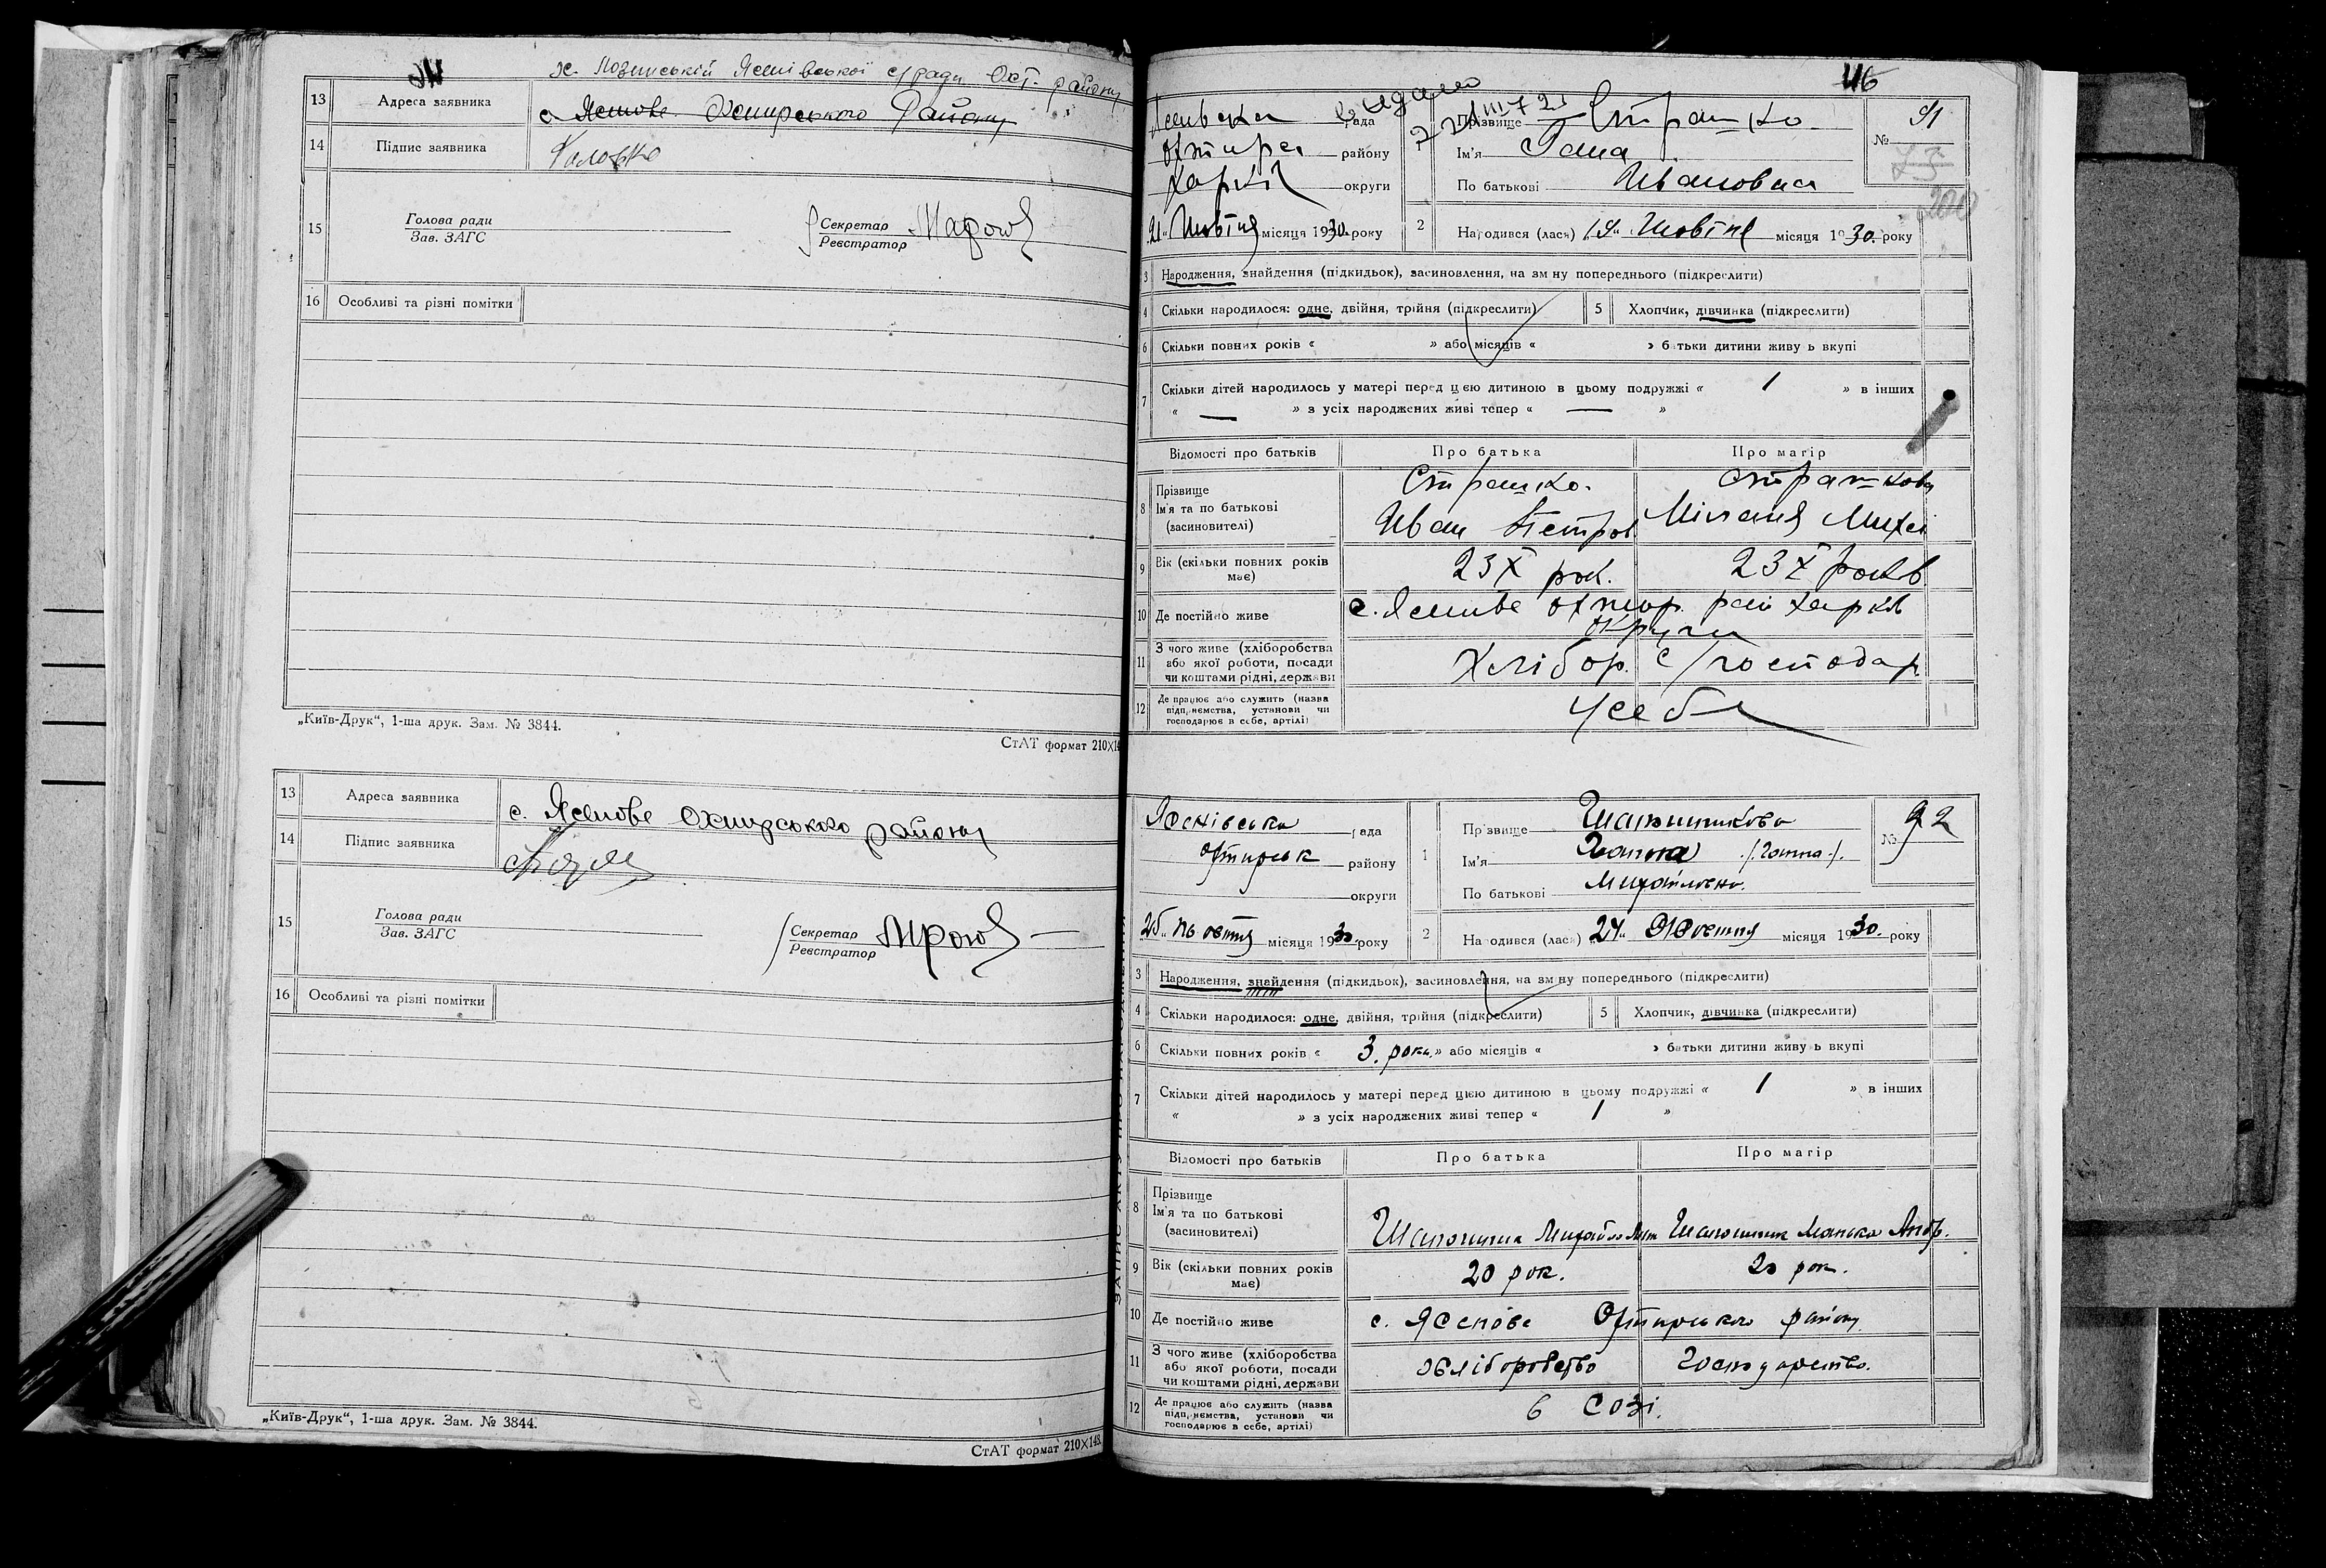 х. Лозинській Ясенівської с/ради Охт. району
13 Адреса заявника с Ясенове Охтирського Району
14 Підпис заявника
15 Голова ради
Зав. ЗАГС
Секретар
Реєстратор
16 Особливі та різні помітки
„Київ-Друк“, 1-ша друк. Зам. № 3844.
СтАТ формат 210×14
13 Адреса заявника с. Ясенове Охтирського району
14 Підпис заявника
15 Голова ради
Зав. ЗАГС
Секретар
Реєстратор
16 Особливі та різні помітки
„Київ-Друк“, 1-ша друк. Зам. № 3844.
СтАТ формат 210×148
46
рада
району
Харків округи
21 Жовтня місяця 1930 року
1 Прізвище Страшко
Ім'я
По батькові Ивановна
№ 91
2 Народився (лась) 19 Жовтня місяця 1930. року
3 Народження, знайдення (підкидьок), засиновлення, на зміну попереднього (підкреслити)
4 Скільки народилося: одне, двійня, трійня (підкреслити)
5 Хлопчик, дівчинка (підкреслити)
6 Скільки повних років « » або місяців « » батьки дитини живуть вкупі
7 Скільки дітей народилось у матері перед цією дитиною в цьому подружжі « 1 » в інших
« — » з усіх народжених живі тепер « — »
Відомості про батьків Про батька Про матір
8 Прізвище
Ім'я та по батькові
(засиновителі)
Страшко.
Иван Петров
Страшкова
9 Вік (скільки повних років має) 23 рок. 23 років
10 Де постійно живе с. Ясенове Охтир. рай Харків
округи
11 З чого живе (хліборобства або якої роботи, посади чи коштами рідні, держави Хлібор. с/господар
12 Де працює або служить (назва підприємства, установи чи господарює в себе, артілі) У себе
Ясенівська рада
Охтирськ району
округи
25 Жовтня місяця 1930. року
1 Прізвище Шапошникова
Ім'я Ганна /.Ганна./.
По батькові Михайловна.
№ 92
2 Народився (лась) 24 Жовтня місяця 1930. року
3 Народження, знайдення (підкидьок), засиновлення, на зміну попереднього (підкреслити)
4 Скільки народилося: одне, двійня, трійня (підкреслити)
5 Хлопчик, дівчинка (підкреслити)
6 Скільки повних років « 3. рока » або місяців « » батьки дитини живуть вкупі
7 Скільки дітей народилось у матері перед цією дитиною в цьому подружжі « 1 » в інших
« » з усіх народжених живі тепер « 1 »
Відомості про батьків Про батька Про матір
8 Прізвище
Ім'я та по батькові
(засиновителі)
Шапошник Михайло Шапошник Андр.
9 Вік (скільки повних років має) 20 рок. 20 рок.
10 Де постійно живе с. Ясенове Охтирського району
11 З чого живе (хліборобства або якої роботи, посади чи коштами рідні, держави хліборобство господарство.
12 Де працює або служить (назва підприємства, установи чи господарює в себе, артілі) в Созі.